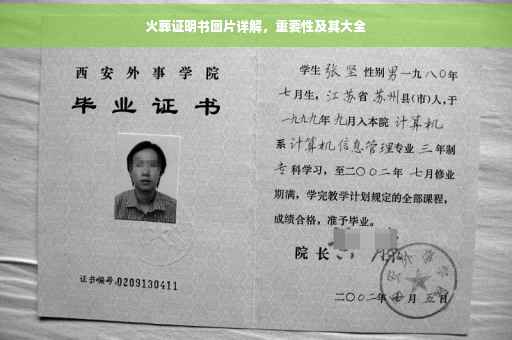 火葬证明书图片详解，重要性及其大全
西安外事学院
毕业证书
证书编号:0209130411
学生 张坚 性别 男 一九八〇年
七月生，江苏省 苏州县(市)人，于
一九九九年 九月入本院 计算机
系 计算机信息管理专业 三 年制
专科学习，至二〇〇二年 七月修业
期满，学完教学计划规定的全部课程，
成绩合格，准予毕业。
院长
二〇〇二年 月 五日